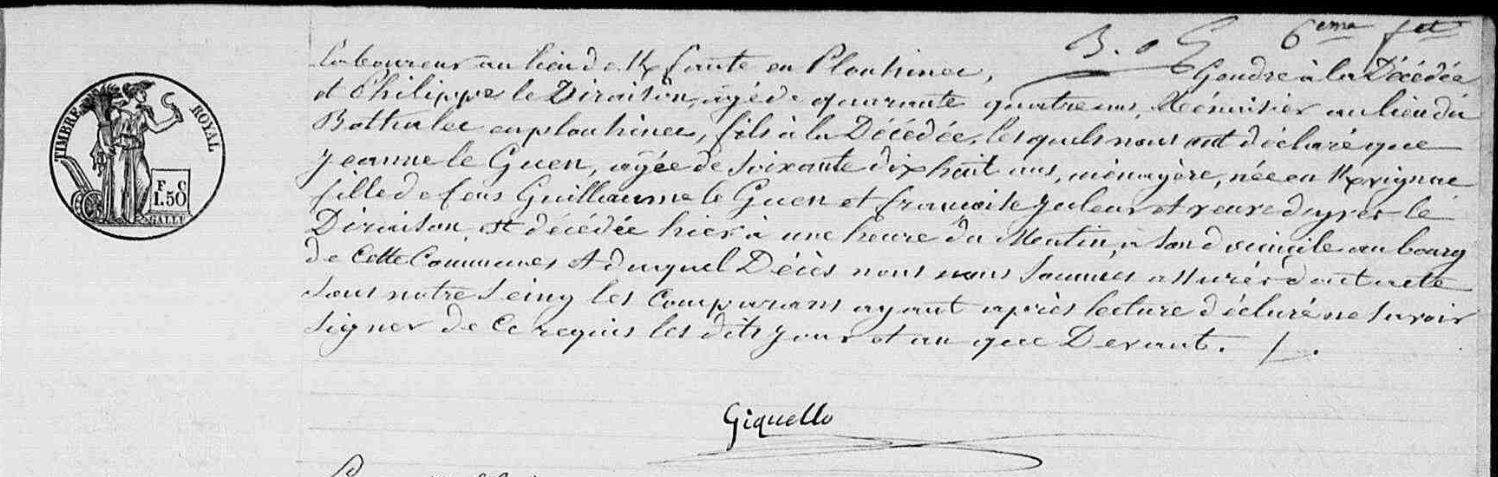 B. G 6eme fet
TIMBRE ROYAL
F C
1.50
SALLE
Laboureur au lieu de en Plouhinec, Gendre à la Décédée
et Philippe le Diraison, âgé de quarante quatre ans, Ménuisier au lieu du
en plouhinec, fils à la Décédée, lesquels nous ont déclaré que
Jeanne le Guen, agée de Soixante dix huit ans, ménagère, née en Kervignac
fille de feus Guillaume le Guen et francoise et veuve d'yves le
Diraison, est décédée hier à une heure du Matin, à son domicile au bourg
de Cette Commune. Et duquel Décès nous nous sommes assurés dont acte
sous notre Seing les Comparans ayant après lecture déclaré ne savoir
signer de Ce requis les dits jour et an que Devant. /.
Giquello